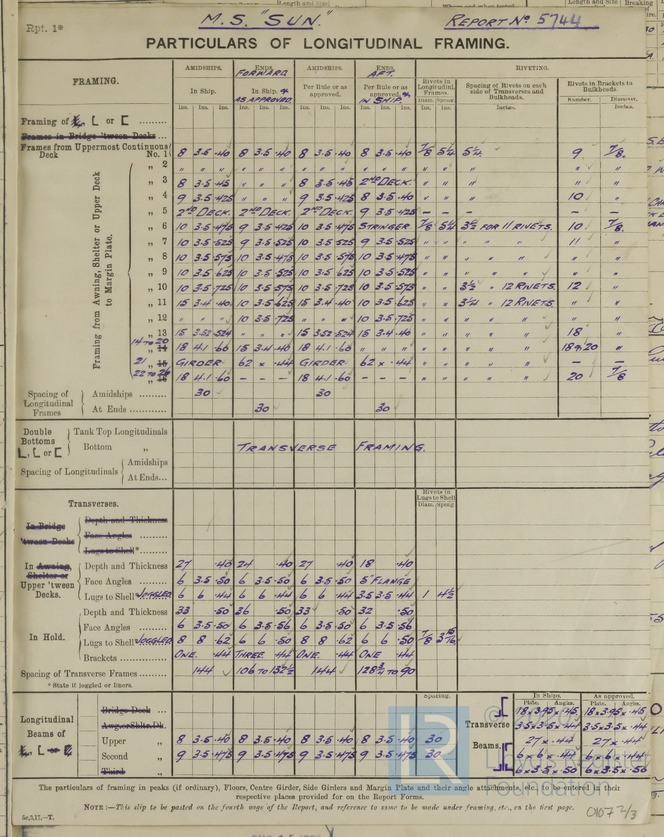 Rpt. 1*
M.S. "SUN."
REPORT No 5744
PARTICULARS OF LONGITUDINAL FRAMING.
FRAMING.
AMIDSHIPS. ENDS, FORWARD AMIDSHIPS. ENDS, AFT. RIVETING.
In Ship. In Ship. & AS APPROVED. Per Rule or as approved. Per Rule or as approved. & IN SHIP. Rivets in Longitudinal Frames. Spacing of Rivets on each side of Transverses and Bulkheads. Rivets in Brackets to Bulkheads.
Ins. Ins. Ins. Ins. Ins. Ins. Ins. Ins. Ins. Ins. Ins. Ins. Diam. Spacing. Inches. Number. Diameter, Inches.
Framing of L, L or [
Frames in Bridge 'tween Decks ...
Frames from Uppermost Continuous Deck No. 1 8 3.5 .40 8 3.5 .40 8 3.5 .40 8 3.5 .40 7/8 5¼ 5¼ 9 7/8
Framing from Awning, Shelter or Upper Deck to Margin Plate.
" 2 " " " " " " " " " " " " " " " " "
" 3 8 3.5 .45 " " " 8 3.5 .45 2ND DECK. " " " " "
" 4 9 3.5 .425 " " " 9 3.5 .425 8 3.5 .40 " " " 10 "
" 5 2ND DECK. 2ND DECK. 2ND DECK. 9 3.5 .425 – – – – –
" 6 10 3.5 .475 9 3.5 .425 10 3.5 .475 STRINGER 7/8 5¼ 3½ FOR 11 RIVETS. 10 7/8
" 7 10 3.5 .525 9 3.5 .525 10 3.5 .525 9 3.5 .525 " " " " " 11 "
" 8 10 3.5 .575 10 3.5 .475 10 3.5 .575 10 3.5 .475 " " " " " " "
" 9 10 3.5 .625 10 3.5 .525 10 3.5 .625 10 3.5 .525 " " " " " " "
" 10 10 3.5 .725 10 3.5 .575 10 3.5 .725 10 3.5 .575 " " 3½ " 12 RIVETS. 12 "
" 11 15 3.4 .40 10 3.5 .625 15 3.4 .40 10 3.5 .625 " " 3¼ " 12 RIVETS. " "
" 12 " " " 10 3.5 .725 " " " 10 3.5 .725 " " " " " " "
" 13 15 3.52 .524 " " " 15 3.52 .524 15 3.4 .40 " " " " " 18 "
14 to 20 18 4.1 .60 15 3.4 .40 18 4.1 .60 " " " " " " " " 18 & 20 "
21 GIRDER 62 × .44 GIRDER 62 × .44 " " " " " – –
22 to 26 18 4.1 .60 – – – 18 4.1 .60 – – – " " " " " 20 7/8
Spacing of Longitudinal Frames { Amidships ......... 30 30
At Ends ......... 30 30
Double Bottoms L, L or [ { Tank Top Longitudinals
Bottom " TRANSVERSE FRAMING.
Spacing of Longitudinals { Amidships
At Ends...
Transverses.
Rivets in Lugs to Shell
Diam. Spacing.
In Bridge 'tween Decks { Depth and Thickness
Face Angles ........
Lugs to Shell* ........
In Awning, Shelter or Upper 'tween Decks. { Depth and Thickness 27 .40 24 .40 27 .40 18 .40
Face Angles ... 6 3.5 .50 6 3.5 .50 6 3.5 .50 5" FLANGE
Lugs to Shell* JOGGLED 6 6 .44 6 6 .44 6 6 .44 3.5 3.5 .44 1 4½
In Hold. { Depth and Thickness 33 .50 36 .50 33 .50 32 .50
Face Angles ... 6 3.5 .50 6 3.5 .56 6 3.5 .50 6 3.5 .56
Lugs to Shell* JOGGLED 8 8 .62 6 6 .50 8 8 .62 6 6 .50 7/8
Brackets ......... ONE. .44 THREE. .44 ONE. .44 ONE .44
Spacing of Transverse Frames ... 144 106 TO 132½ 144 128¾ TO 90
* State if joggled or liners.
Longitudinal Beams of L, L or [
Bridge Deck ...
Awng. or Shltr. Dk.
Upper " 8 3.5 .40 8 3.5 .40 8 3.5 .40 8 3.5 .40 30
Second " 9 3.5 .475 9 3.5 .475 9 3.5 .475 9 3.5 .475 30
Third "
Spacing.
Transverse Beams.
In Ships. As approved.
Plate. Angles. Plate. Angles.
18 × 3.95 × .45 18 × 3.95 × .45
3.5 × 3.5 × .44 3.5 × 3.5 × .44
27 × .44 27 × .44
6 × 6 × .44 6 × 6 × .44
6 × 3.5 × .50 6 × 3.5 × .50
The particulars of framing in peaks (if ordinary), Floors, Centre Girder, Side Girders and Margin Plate and their angle attachments, etc., to be entered in their
respective places provided for on the Report Forms.
NOTE:—This slip to be pasted on the fourth page of the Report, and reference to same to be made under framing, etc., on the first page.
5c,3,17.—T.
LR
Lloyd's Register
Foundation